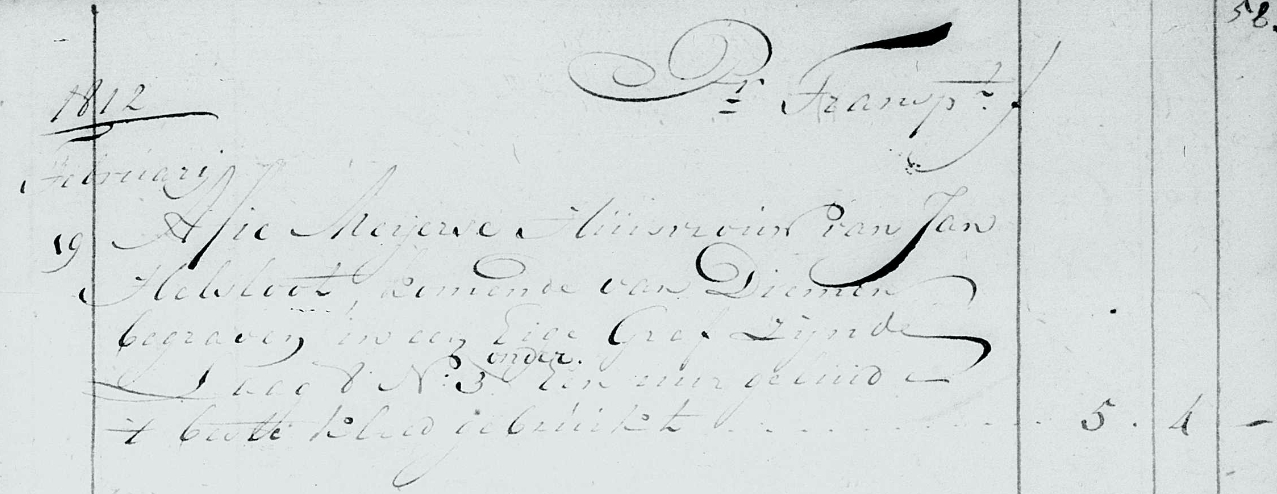 58
Pr Transpt
1812
Februarij
19 Afie Meijerse Huisvrouw van Jan
Helsloot, komende van Diemen
begraven in een Eige Graf Zijnde
Laag 8 No: 3 onder. Een uur geluid
t beste kleed gebruikt 5 . 4 -